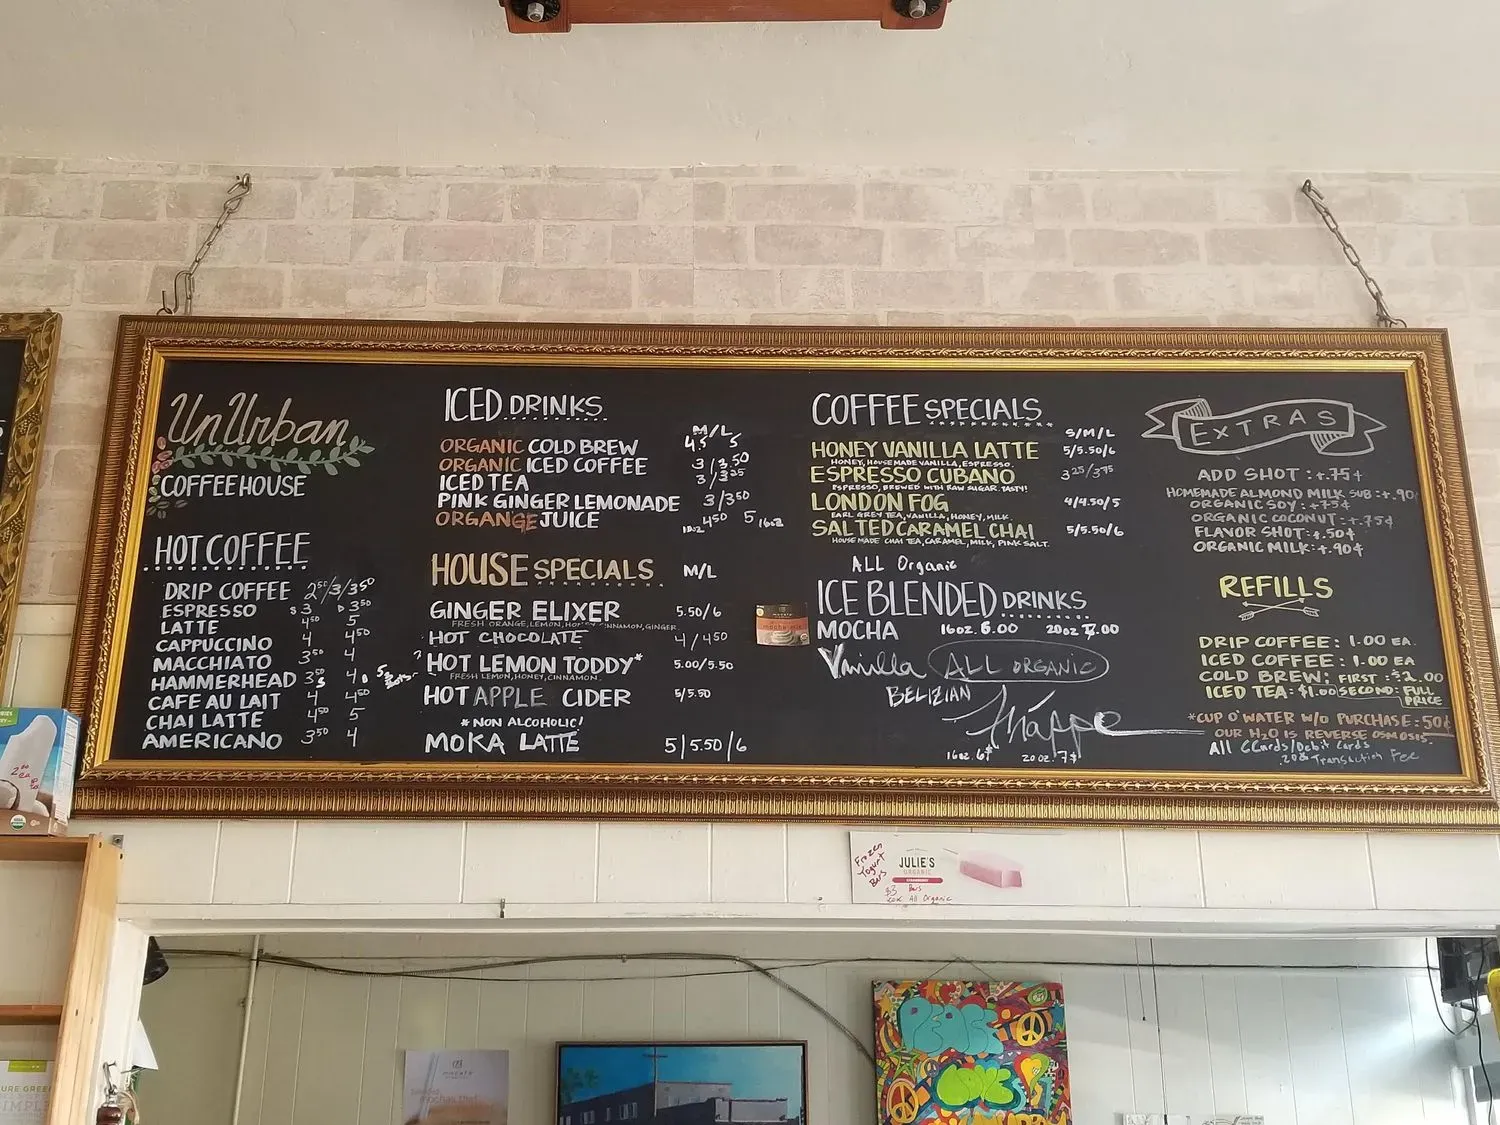 UnUrban
COFFEEHOUSE
HOT COFFEE
DRIP COFFEE 2⁵⁰/3/3⁵⁰
ESPRESSO S 3 D 3⁵⁰
LATTE 4⁵⁰ 5
CAPPUCCINO 4 4⁵⁰
MACCHIATO 3⁵⁰ 4
HAMMERHEAD
CAFE AU LAIT 4 4⁵⁰
CHAI LATTE 4⁵⁰ 5
AMERICANO 3⁵⁰ 4
ICED DRINKS
M/L
ORGANIC COLD BREW 4.5 5
ORGANIC ICED COFFEE 3/3.50
ICED TEA 3/3²⁵
PINK GINGER LEMONADE 3/3⁵⁰
ORGANGE JUICE 10oz 4⁵⁰ 5 16oz
HOUSE SPECIALS M/L
GINGER ELIXER 5.50/6
FRESH ORANGE, LEMON, GINGER
HOT CHOCOLATE 4/4⁵⁰
HOT LEMON TODDY* 5.00/5.50
FRESH LEMON, HONEY, CINNAMON
HOT APPLE CIDER 5/5.50
*NON ALCOHOLIC!
MOKA LATTE 5/5.50/6
COFFEE SPECIALS
S/M/L
HONEY VANILLA LATTE 5/5.50/6
HONEY, HOUSEMADE VANILLA, ESPRESSO.
ESPRESSO CUBANO 3²⁵/3⁷⁵
ESPRESSO, BREWED WITH RAW SUGAR. TASTY!
LONDON FOG 4/4.50/5
EARL GREY TEA, VANILLA, HONEY, MILK
SALTED CARAMEL CHAI 5/5.50/6
HOUSE MADE CHAI TEA, CARAMEL, MILK, PINK SALT.
ALL Organic
ICE BLENDED DRINKS
MOCHA 16oz. 6.00 20oz 7.00
Vanilla ALL ORGANIC
BELIZIAN
Fráppe
16oz. 6$ 20oz. 7$
EXTRAS
ADD SHOT: +.75¢
HOMEMADE ALMOND MILK SUB: +.90
ORGANIC SOY: +75¢
ORGANIC COCONUT: +.75¢
FLAVOR SHOT: +.50¢
ORGANIC MILK: +.90¢
REFILLS
DRIP COFFEE: 1.00 EA.
ICED COFFEE: 1.00 EA
COLD BREW: FIRST: $2.00
ICED TEA: $1.00 SECOND: FULL
PRICE
*CUP O' WATER W/O PURCHASE: 50¢
OUR H₂O IS REVERSE OSMOSIS.
All CCards/Debit Cards
Transaction Fee
Frozen
Yogurt
Bars
JULIE'S
ORGANIC
$3 Bars
All Organic
PEACE
LOVE